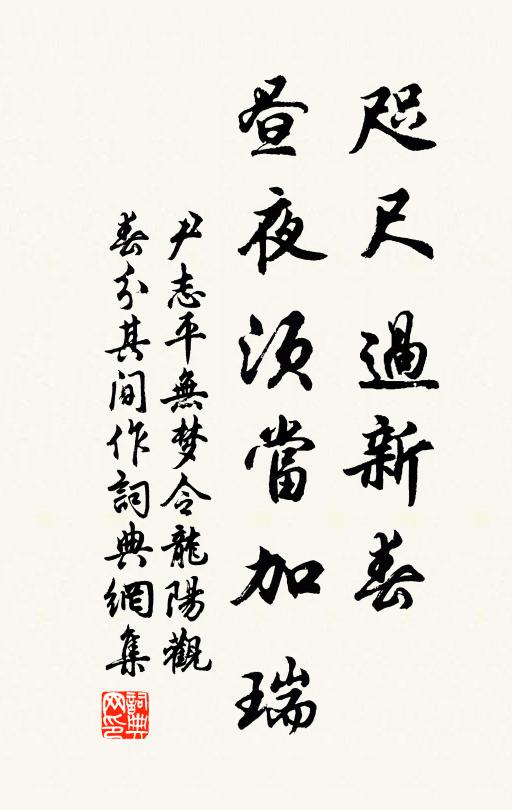 咫尺過新春
晝夜須當加瑞
尹志平無梦令龍陽觀
春分其間作詞典網集
詞典网印